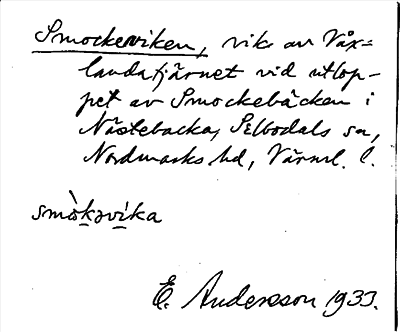 Smockerviken, vik av Väx=
landatjärnet vid utlop-
pet av Smockebäcken i
Nästebacka, Silbodals sn,
Nordmarks hd, Värml. l.
smòkəvi̇́ka
E. Andersson 1933.